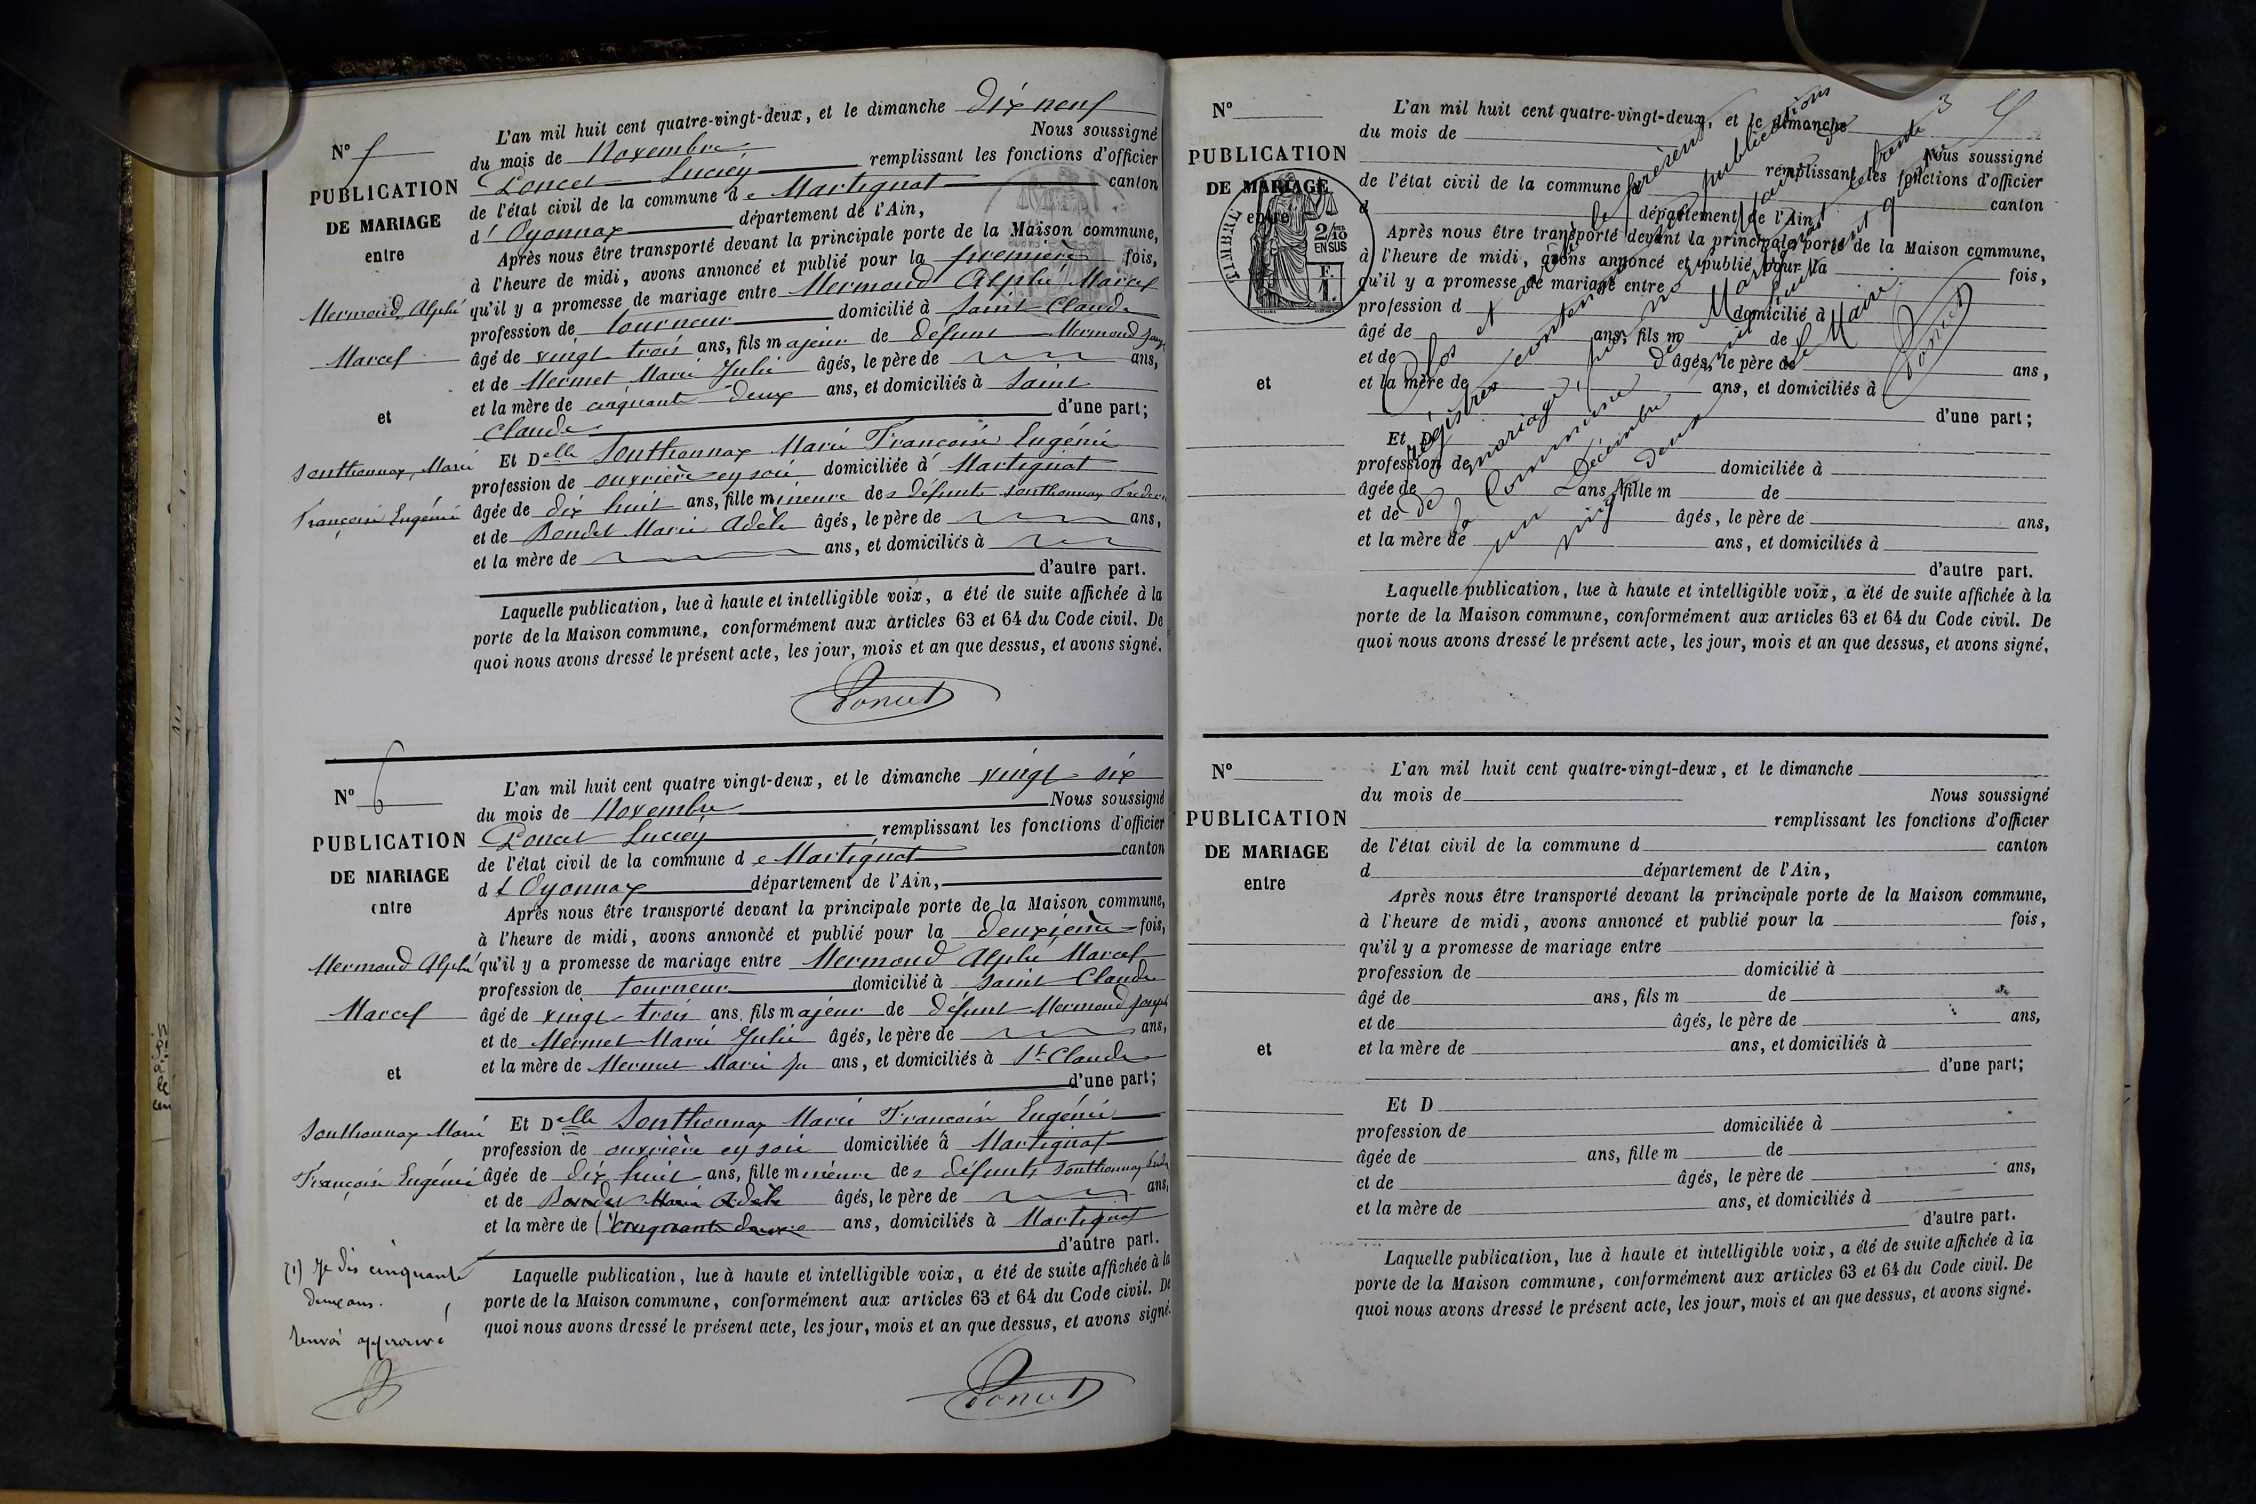 N° 5
PUBLICATION
DE MARIAGE
entre
Mermoud, Alphé
Marcel
et
Sonthonnax, Marie
Françoise Eugénie
L'an mil huit cent quatre-vingt-deux, et le dimanche dix neuf
du mois de Novembre Nous soussigné
Poncet Lucien remplissant les fonctions d'officier
de l'état civil de la commune de Martignat canton
d'Oyonnax département de l'Ain,
Après nous être transporté devant la principale porte de la Maison commune,
à l'heure de midi, avons annoncé et publié pour la première fois,
qu'il y a promesse de mariage entre Mermoud Alphé Marcel
profession de tourneur domicilié à Saint Claude
âgé de vingt trois ans, fils majeur de défunt Mermoud Joseph
et de Mermet Marie Julie âgés, le père de ans,
et la mère de cinquante deux ans, et domiciliés à Saint
Claude d'une part;
Et Delle Sonthonnax Marie Françoise Eugénie
profession de ouvrière en soie domiciliée à Martignat
âgée de dix huit ans, fille mineure des défunts Sonthonnax Frédéric
et de Bondet Marie Adèle âgés, le père de ans,
et la mère de ans, et domiciliés à
d'autre part.
Laquelle publication, lue à haute et intelligible voix, a été de suite affichée à la
porte de la Maison commune, conformément aux articles 63 et 64 du Code civil. De
quoi nous avons dressé le présent acte, les jour, mois et an que dessus, et avons signé.
Poncet
N° 6
PUBLICATION
DE MARIAGE
entre
Mermoud Alphé
Marcel
et
Sonthonnax Marie
Françoise Eugénie
(1) Je dis cinquante
deux ans.
Renvoi approuvé
L'an mil huit cent quatre vingt-deux, et le dimanche vingt six
du mois de Novembre Nous soussigné
Poncet Lucien remplissant les fonctions d'officier
de l'état civil de la commune de Martignat canton
d'Oyonnax département de l'Ain,
Après nous être transporté devant la principale porte de la Maison commune,
à l'heure de midi, avons annoncé et publié pour la deuxième fois,
qu'il y a promesse de mariage entre Mermoud Alphé Marcel
profession de tourneur domicilié à Saint Claude
âgé de vingt trois ans, fils majeur de défunt Mermoud Joseph
et de Mermet Marie Julie âgés, le père de ans,
et la mère de Mermet Marie Ju ans, et domiciliés à St Claude
d'une part;
Et Delle Sonthonnax Marie Françoise Eugénie
profession de ouvrière en soie domiciliée à Martignat
âgée de dix huit ans, fille mineure des défunts Sonthonnax
et de Bondet Marie Adèle âgés, le père de ans,
et la mère de (1) cinquante deux ans, domiciliés à Martignat
d'autre part.
Laquelle publication, lue à haute et intelligible voix, a été de suite affichée à la
porte de la Maison commune, conformément aux articles 63 et 64 du Code civil. De
quoi nous avons dressé le présent acte, les jour, mois et an que dessus, et avons signé.
Poncet
N°
PUBLICATION
DE MARIAGE
entre
TIMBRE
2/10 EN SUS
F. 1.
et
L'an mil huit cent quatre-vingt-deux, et le dimanche
du mois de Nous soussigné
remplissant les fonctions d'officier
de l'état civil de la commune d canton
d département de l'Ain,
Après nous être transporté devant la principale porte de la Maison commune,
à l'heure de midi, avons annoncé et publié pour la fois,
qu'il y a promesse de mariage entre
profession d domicilié à
âgé de ans, fils m de
et de âgés, le père de ans,
et la mère de ans, et domiciliés à
d'une part;
Et D
profession de domiciliée à
âgée de ans, fille m de
et de âgés, le père de ans,
et la mère de ans, et domiciliés à
d'autre part.
Laquelle publication, lue à haute et intelligible voix, a été de suite affichée à la
porte de la Maison commune, conformément aux articles 63 et 64 du Code civil. De
quoi nous avons dressé le présent acte, les jour, mois et an que dessus, et avons signé.
Clos et le présent
régistre contenant publications
de mariage, par nous Maire
de la Commune de Martignat le trente
un Décembre mil huit cent quatre
vingt deux
le Maire
Poncet
N°
PUBLICATION
DE MARIAGE
entre
et
L'an mil huit cent quatre-vingt-deux, et le dimanche
du mois de Nous soussigné
remplissant les fonctions d'officier
de l'état civil de la commune d canton
d département de l'Ain,
Après nous être transporté devant la principale porte de la Maison commune,
à l'heure de midi, avons annoncé et publié pour la fois,
qu'il y a promesse de mariage entre
profession de domicilié à
âgé de ans, fils m de
et de âgés, le père de ans,
et la mère de ans, et domiciliés à
d'une part;
Et D
profession de domiciliée à
âgée de ans, fille m de
et de âgés, le père de ans,
et la mère de ans, et domiciliés à
d'autre part.
Laquelle publication, lue à haute et intelligible voix, a été de suite affichée à la
porte de la Maison commune, conformément aux articles 63 et 64 du Code civil. De
quoi nous avons dressé le présent acte, les jour, mois et an que dessus, et avons signé.